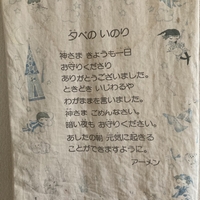 夕べの いのり
神さま きょうも一日
お守りくださり
ありがとうございました。
ときどき いじわるや
わがままを言いました。
神さま ごめんなさい。
暗い夜も お守りください。
あしたの朝 元気に起きる
ことができますように。
アーメン